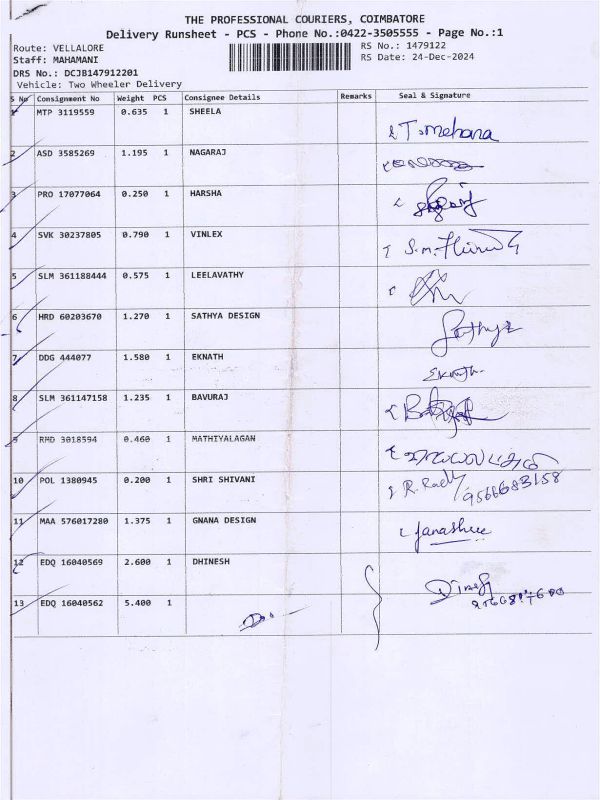 THE PROFESSIONAL COURIERS, COIMBATORE
Delivery Runsheet - PCS - Phone No.:0422-3505555 - Page No.:1
Route: VELLALORE
RS No.: 1479122
Staff: MAHAMANI
RS Date: 24-Dec-2024
DRS No.: DCJB147912201
Vehicle: Two Wheeler Delivery
S No Consignment No Weight PCS Consignee Details Remarks Seal & Signature
1 MTP 3119559 0.635 1 SHEELA T. mehana
2 ASD 3585269 1.195 1 NAGARAJ
3 PRO 17077064 0.250 1 HARSHA
4 SVK 30237805 0.790 1 VINLEX S.m.
5 SLM 361188444 0.575 1 LEELAVATHY
6 HRD 60203670 1.270 1 SATHYA DESIGN Sathya
7 DDG 444077 1.580 1 EKNATH
8 SLM 361147158 1.235 1 BAVURAJ
9 RMD 3018594 0.460 1 MATHIYALAGAN
10 POL 1380945 0.200 1 SHRI SHIVANI R. 9566683158
11 MAA 576017280 1.375 1 GNANA DESIGN Janashree
12 EDQ 16040569 2.600 1 DHINESH
13 EDQ 16040562 5.400 1